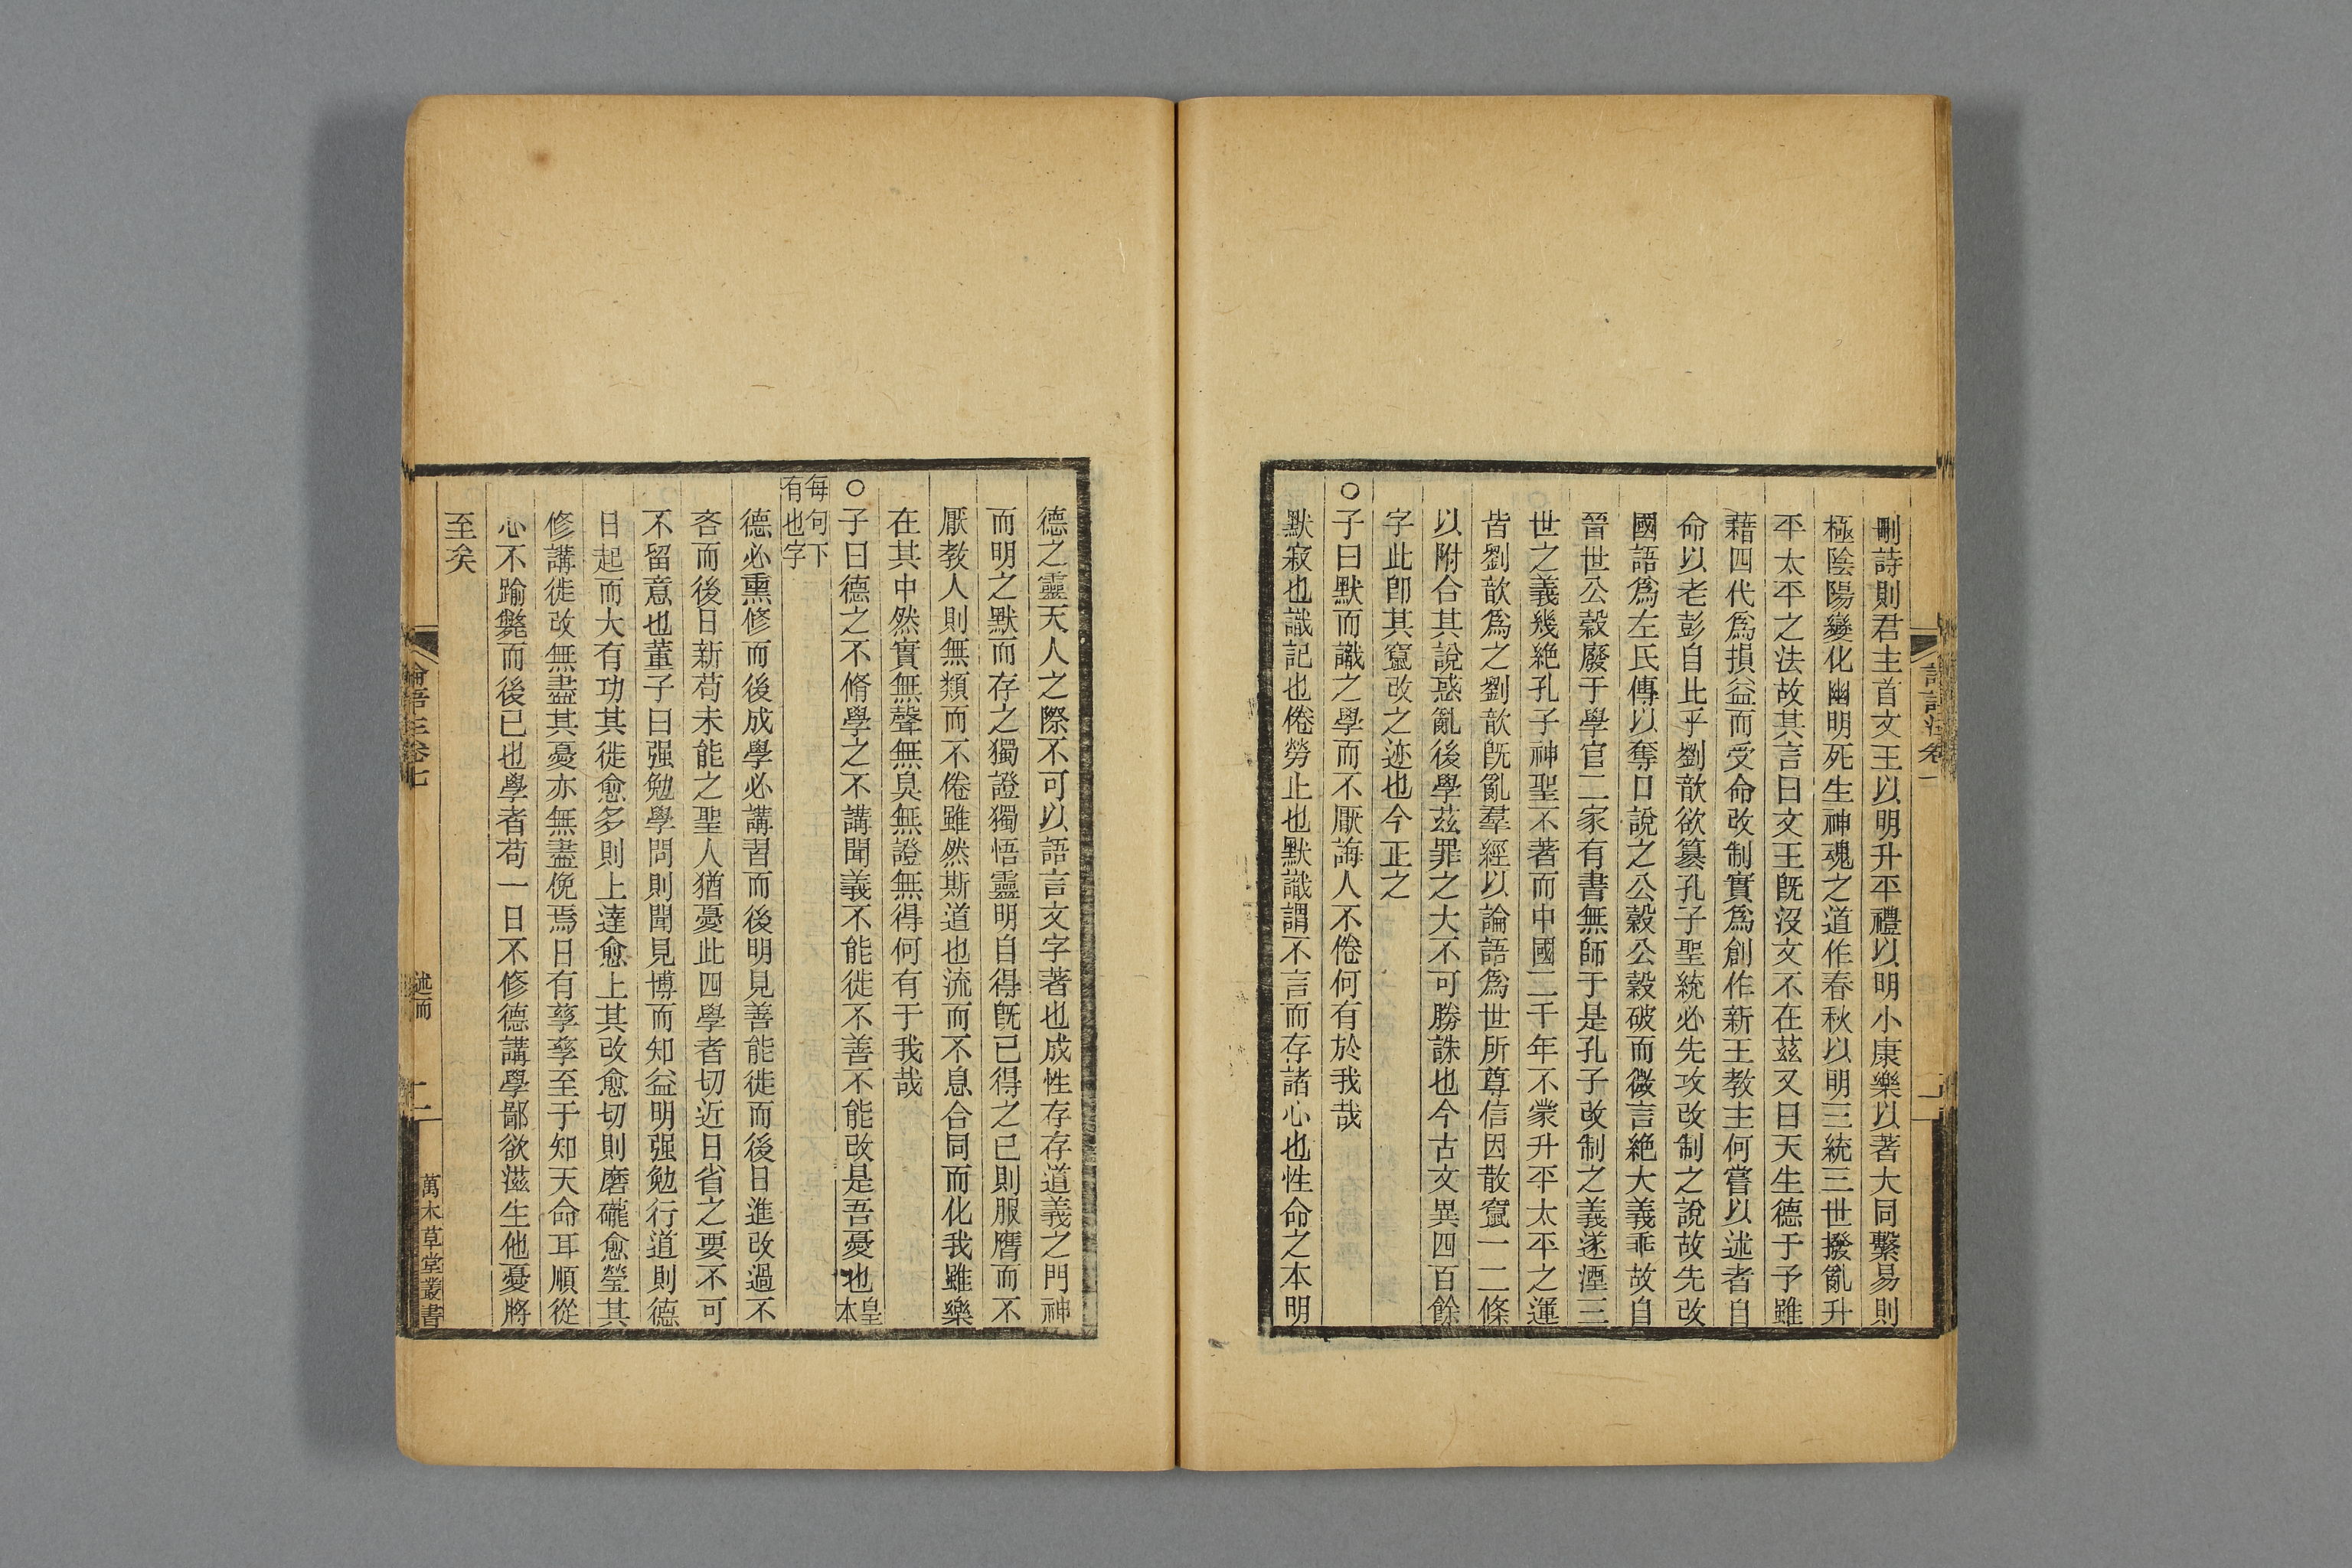 刪詩則君主首文王以明升平禮以明小康樂以著大同繫易則
極陰陽變化幽明死生神魂之道作春秋以明三統三世撥亂升
平太平之法故其言曰文王既沒文不在茲又曰天生德于予雖
藉四代爲損益而受命改制實爲創作新王教主何嘗以述者自
命以老彭自比乎劉歆欲篡孔子聖統必先攻改制之說故先改
國語爲左氏傳以奪口說之公穀公穀破而微言絕大義乖故自
晉世公穀廢于學官二家有書無師于是孔子改制之義遂湮三
世之義幾絕孔子神聖不著而中國二千年不蒙升平太平之運
皆劉歆爲之劉歆既亂羣經以論語爲世所尊信因散竄一二條
以附合其說惑亂後學茲罪之大不可勝誅也今古文異四百餘
字此卽其竄改之迹也今正之
○子曰默而識之學而不厭誨人不倦何有於我哉
默寂也識記也倦勞止也默識謂不言而存諸心也性命之本明
德之靈天人之際不可以語言文字著也成性存存道義之門神
而明之默而存之獨證獨悟靈明自得既已得之已則服膺而不
厭教人則無類而不倦雖然斯道也流而不息合同而化我雖樂
在其中然實無聲無臭無證無得何有于我哉
○子曰德之不脩學之不講聞義不能徙不善不能改是吾憂也皇本
每句下有也字
德必熏修而後成學必講習而後明見善能徙而後日進改過不
吝而後日新苟未能之聖人猶憂此四學者切近日省之要不可
不留意也董子曰强勉學問則聞見博而知益明强勉行道則德
日起而大有功其徙愈多則上達愈上其改愈切則磨礲愈瑩其
修講徙改無盡其憂亦無盡俛焉日有孳孳至于知天命耳順從
心不踰斃而後已也學者苟一日不修德講學鄙欲滋生他憂將
至矣
論語注卷七
述而
二
萬木草堂叢書